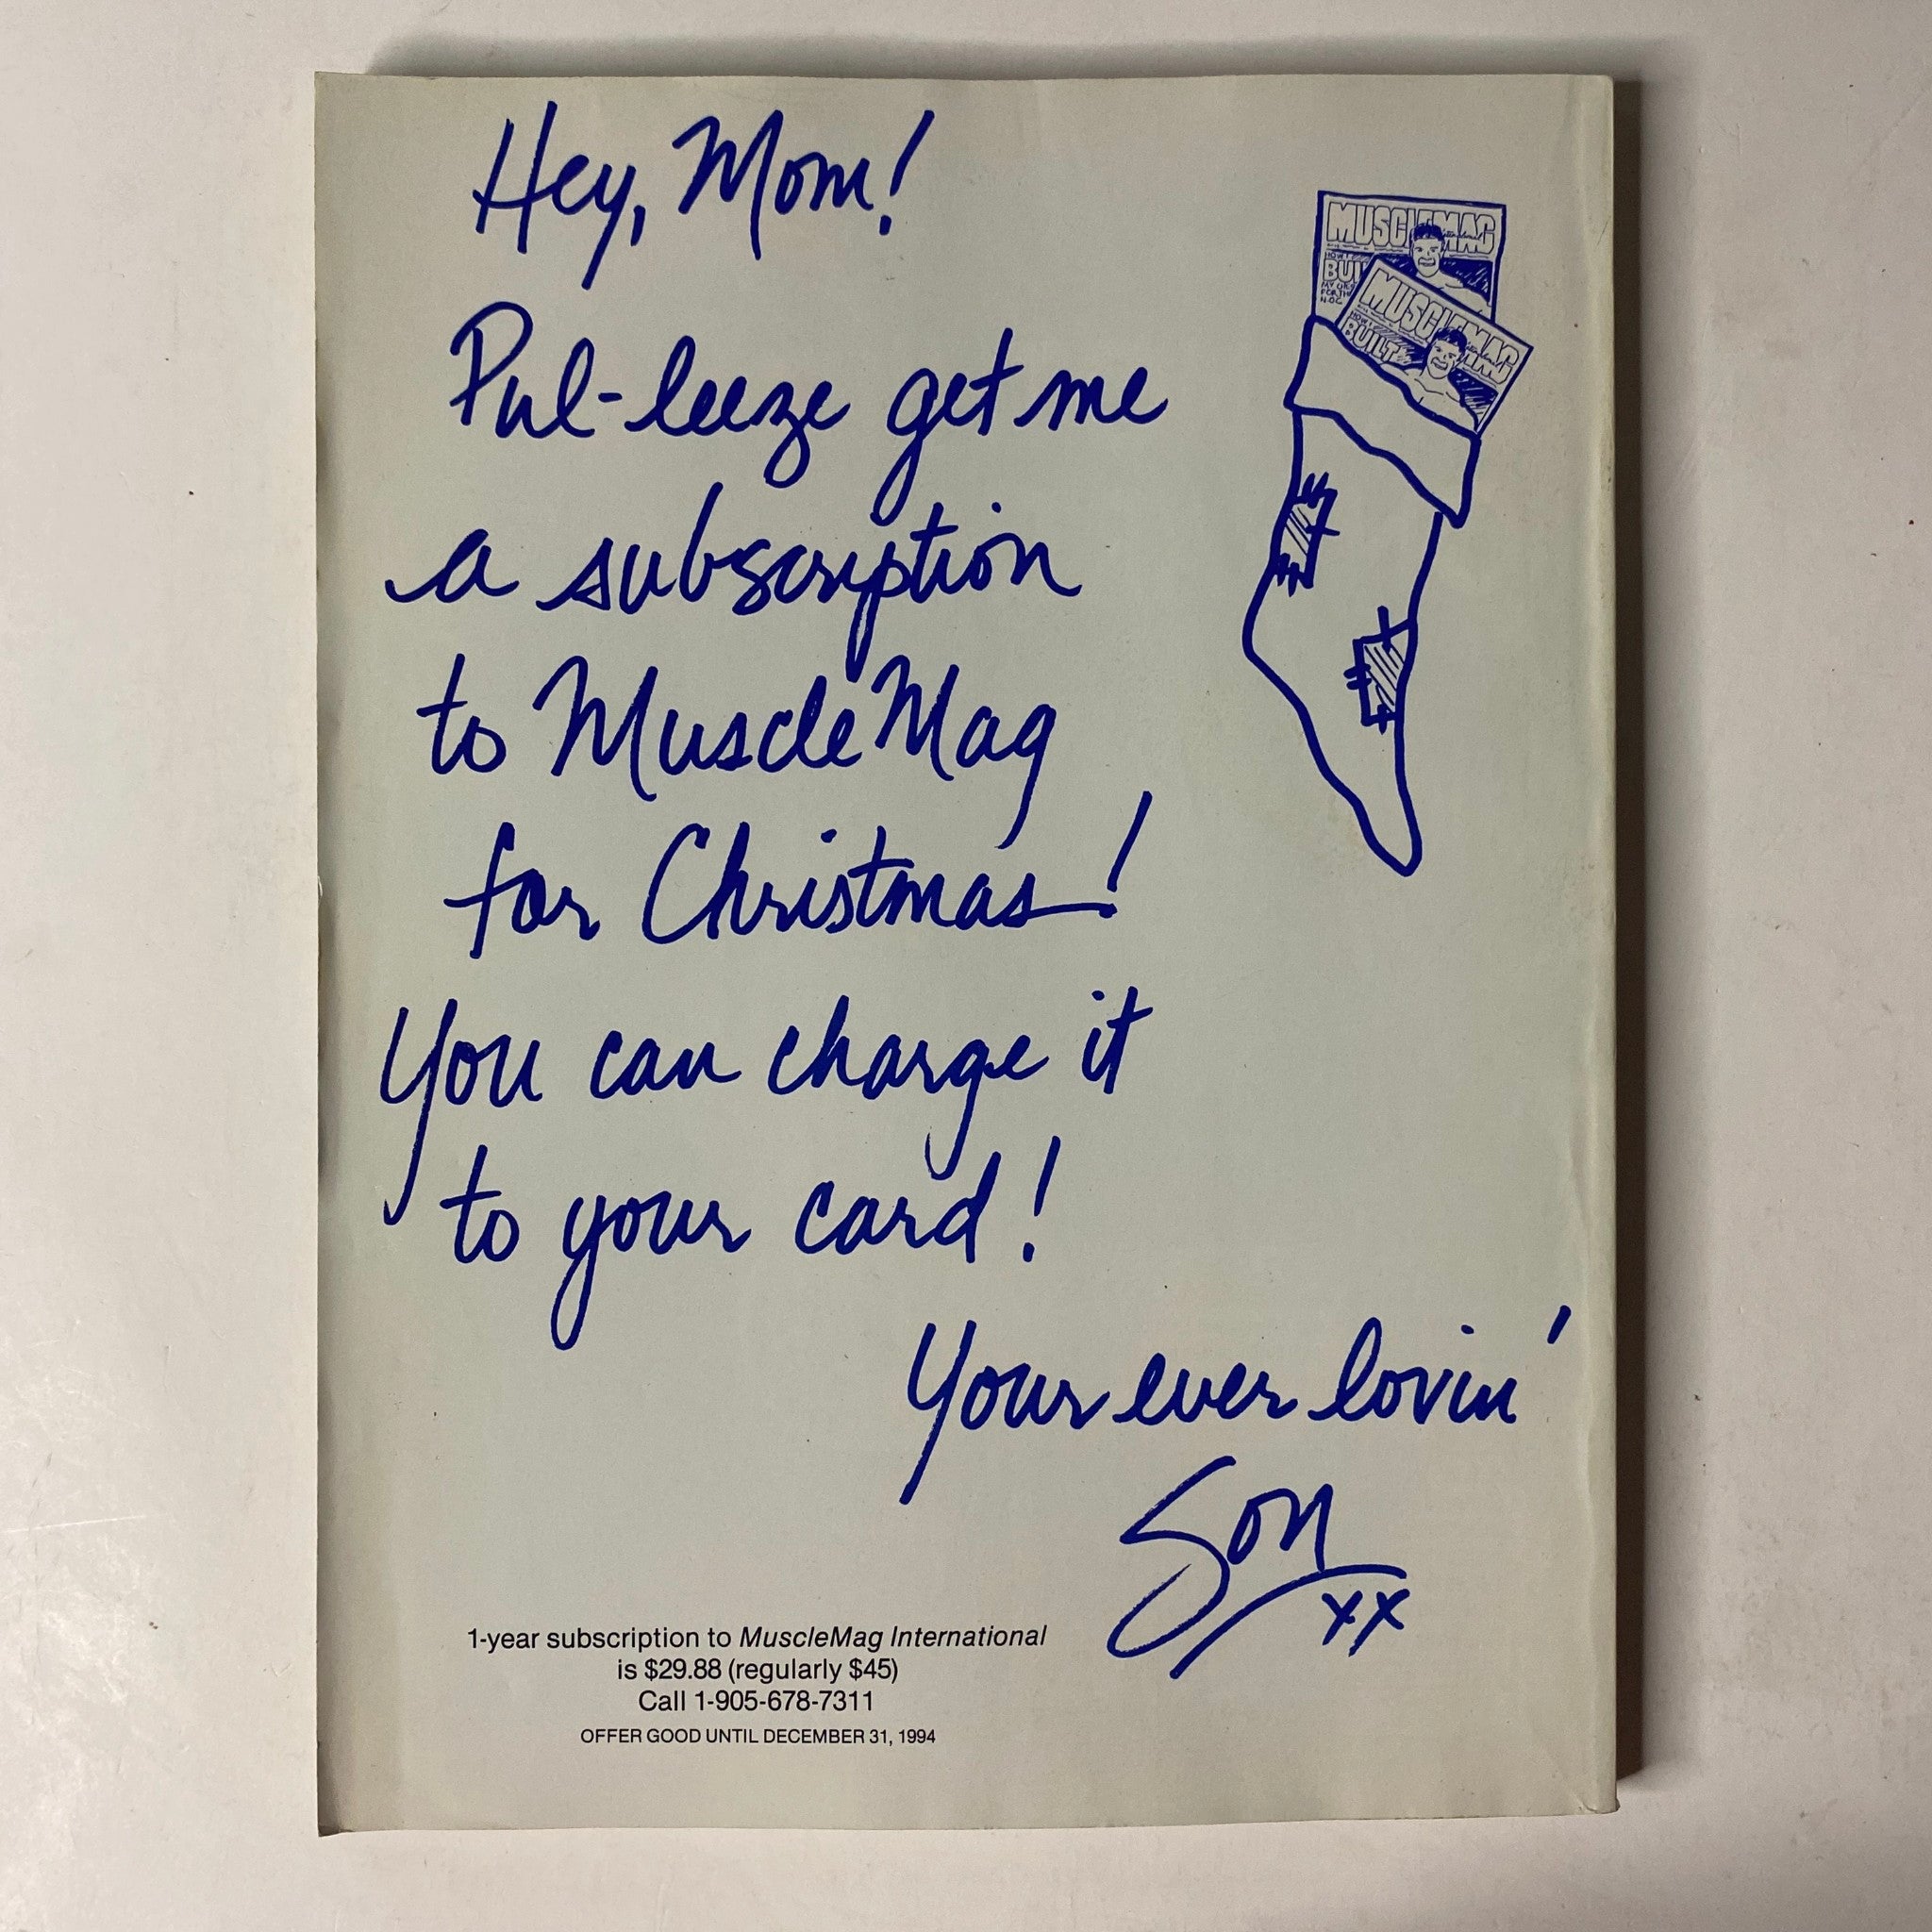 Hey, Mom!
Pul-leeze get me
a subscription
to MuscleMag
for Christmas!
You can charge it
to your card!
Your ever lovin'
Son
xx
MUSCLEMAG
BUI
MUSCLEMAG
HOW I
BUILT
1-year subscription to MuscleMag International
is $29.88 (regularly $45)
Call 1-905-678-7311
OFFER GOOD UNTIL DECEMBER 31, 1994